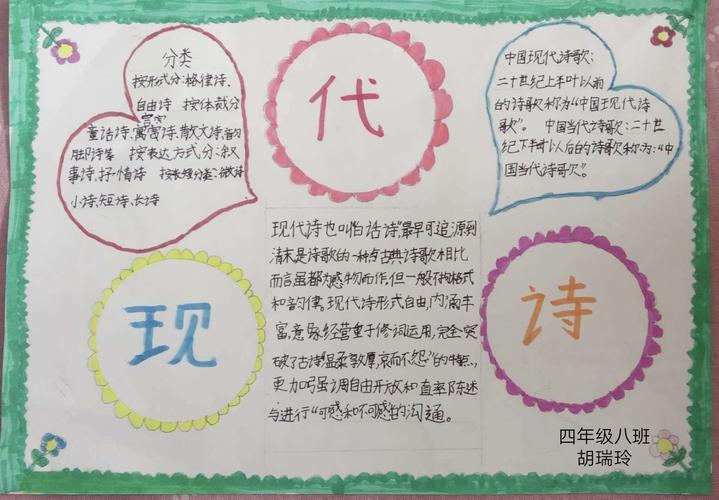 分类
按形式分:格律诗、
自由诗 按体裁分
童话诗、寓言诗、散文诗、韵
脚诗等 按表达方式分:叙
事诗、抒情诗 按长短分类:微诗
小诗、短诗、长诗
代
中国现代诗歌:
二十世纪上半叶以前
的诗歌称为“中国现代诗
歌”。 中国当代诗歌:二十世
纪下半叶以后的诗歌称为:“中
国当代诗歌”。
现
现代诗也叫“白话诗”最早可追源到
清末是诗歌的一种与古典诗歌相比
而言虽都为感物而作,但一般不拘格式
和韵律。现代诗形式自由,内涵丰
富,意象经营重于修词运用,完全突
破了古诗“温柔敦厚,哀而不怨”的特点,
更加强调自由开放和直率陈述
与进行“可感和不可感性的沟通。
诗
四年级八班
胡瑞玲